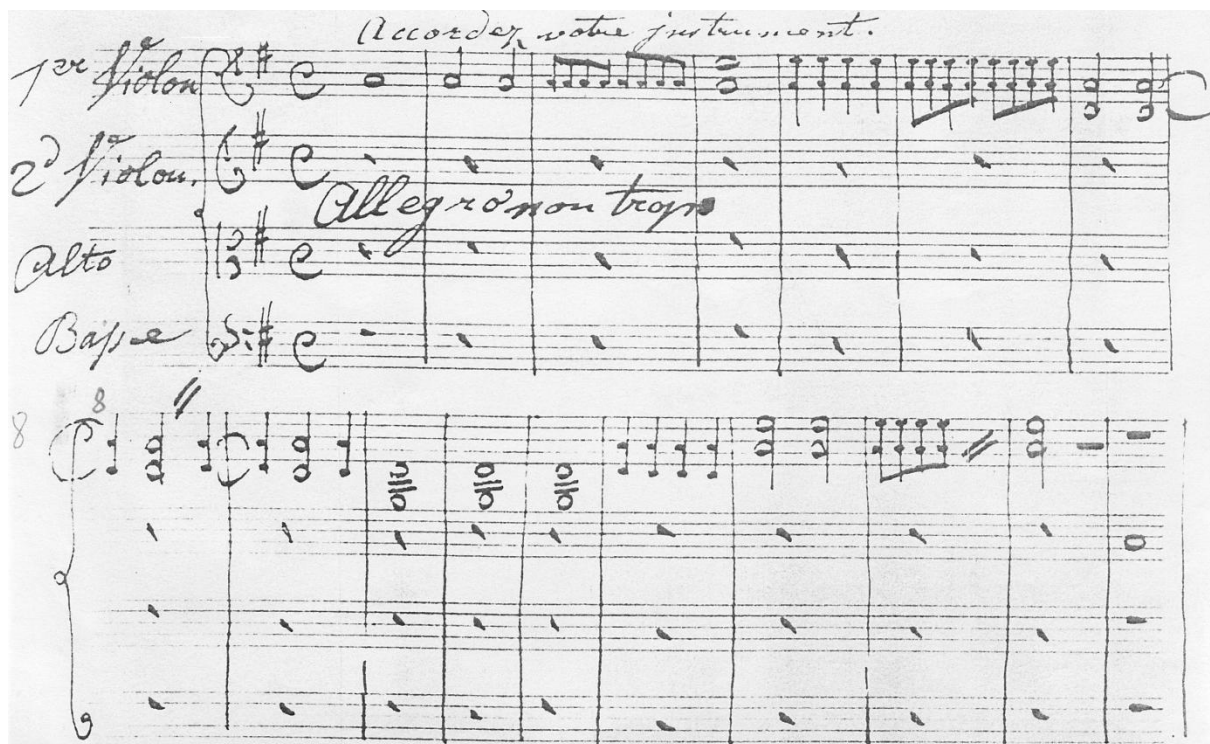 Accordez votre instrument.
1er Violon
2d Violon.
Allegro non trop
Alto
Basse
8
8